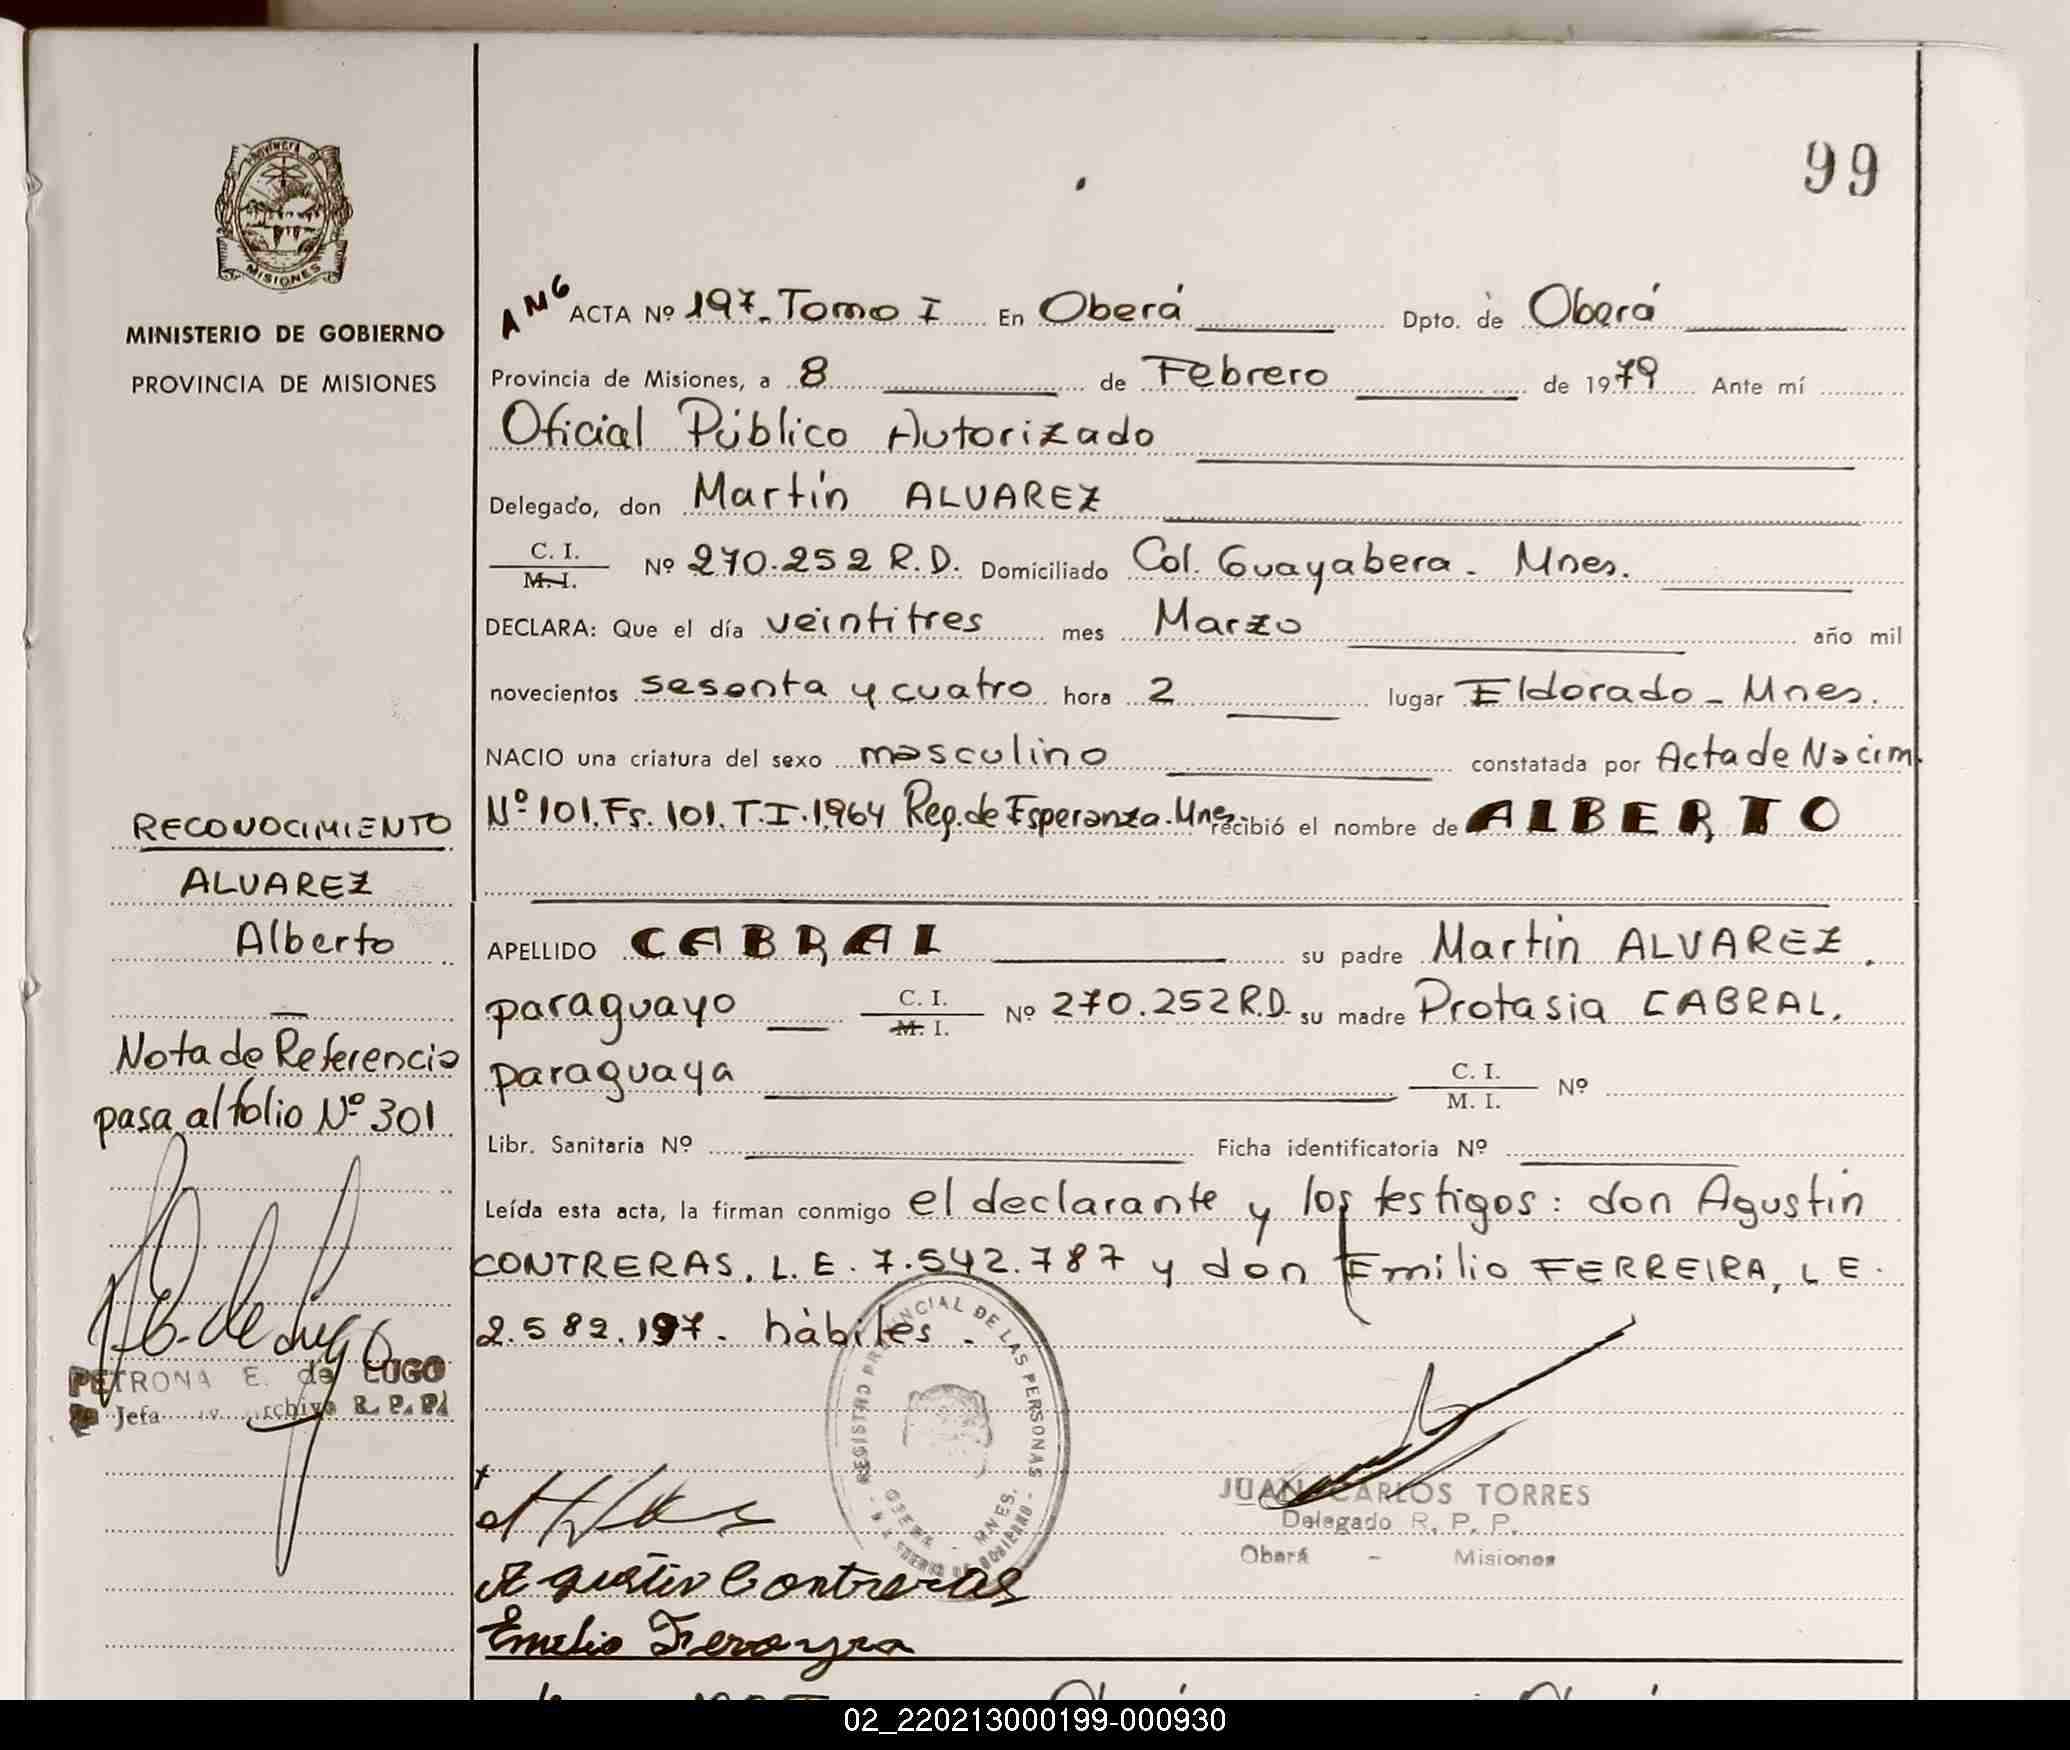 99
PROVINCIA DE
MISIONES
MINISTERIO DE GOBIERNO
PROVINCIA DE MISIONES
ANG ACTA Nº 197. Tomo I En Oberá Dpto. de Oberá
Provincia de Misiones, a 8 de Febrero de 1979 Ante mí
Oficial Público Autorizado
Delegado, don Martín ALVAREZ
C. I.
M. I. Nº 270.252 R.D. Domiciliado Col. Guayabera - Mnes.
DECLARA: Que el día veintitres mes Marzo año mil
novecientos sesenta y cuatro hora 2 lugar Eldorado - Mnes.
NACIO una criatura del sexo masculino constatada por Acta de Nacim.
Nº 101. Fs. 101. T. I. 1964 Reg. de Esperanza. Mnes. recibió el nombre de ALBERTO
APELLIDO CABRAL su padre Martín ALVAREZ.
paraguayo C. I.
M. I. Nº 270.252 R.D. su madre Protasia CABRAL.
paraguaya C. I.
M. I. Nº
Libr. Sanitaria Nº Ficha identificatoria Nº
Leída esta acta, la firman conmigo el declarante y los testigos: don Agustín
CONTRERAS, L. E. 7.542.787 y don Emilio FERREIRA, L E.
2.582.197. hàbiles.
RECONOCIMIENTO
ALVAREZ
Alberto
Nota de Referencia
pasa al folio Nº 301
P E. de Lugo
PETRONA E. de LUGO
Jefa archivo R. P. P.
REGISTRO PROVINCIAL DE LAS PERSONAS
OBERA - MNES.
MINISTERIO DE GOBIERNO
JUAN CARLOS TORRES
Delegado R. P. P.
Oberá - Misiones
Agustin Contreras
Emilio Ferreyra
02_220213000199-000930